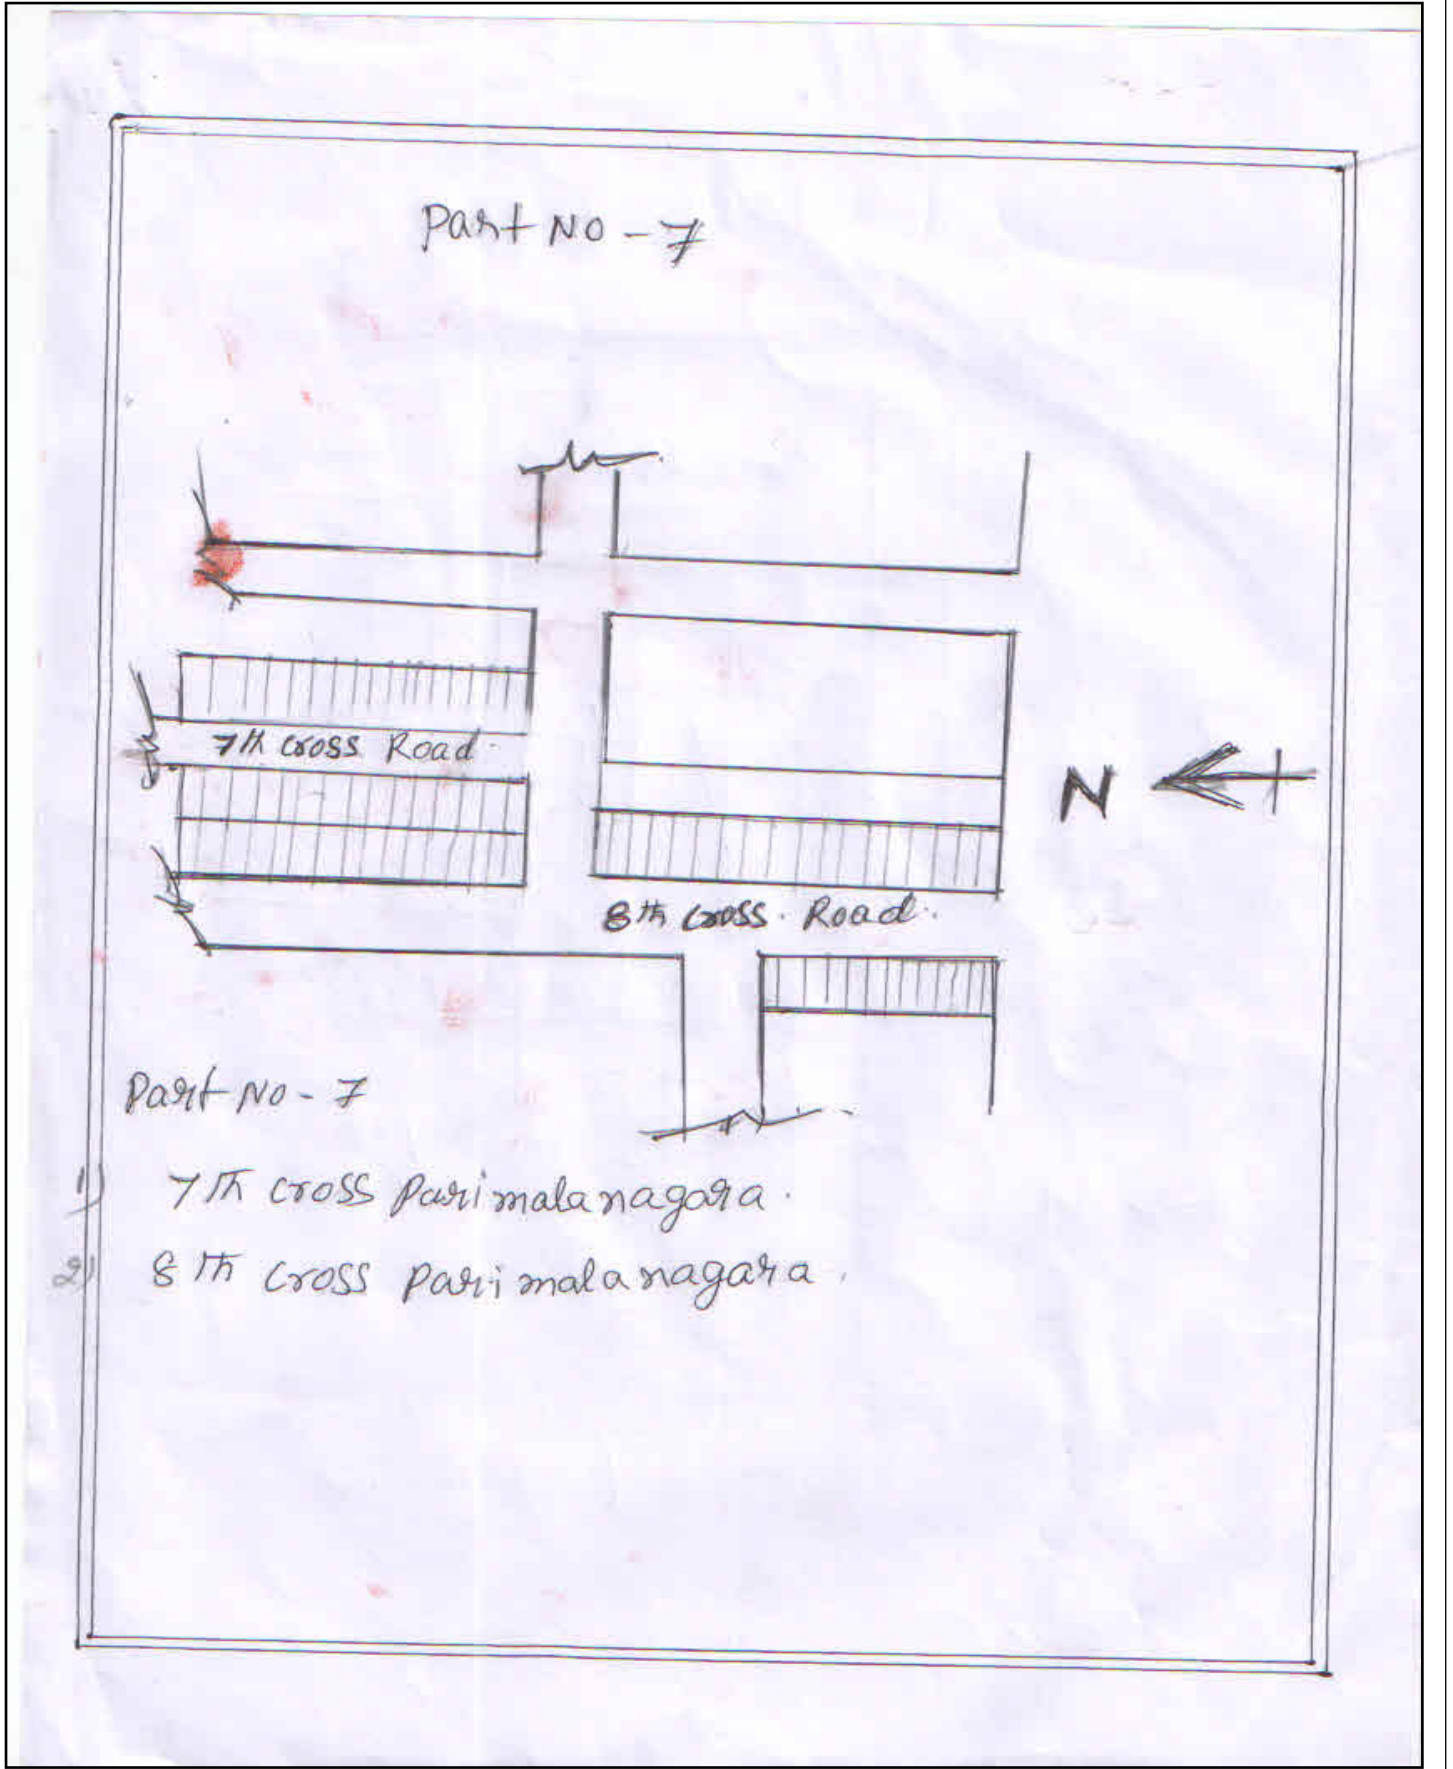 Part No - 7
7th cross Road.
N
8th cross. Road.
Part No - 7
1) 7th cross Parimalanagara.
2) 8th cross Parimalanagara.